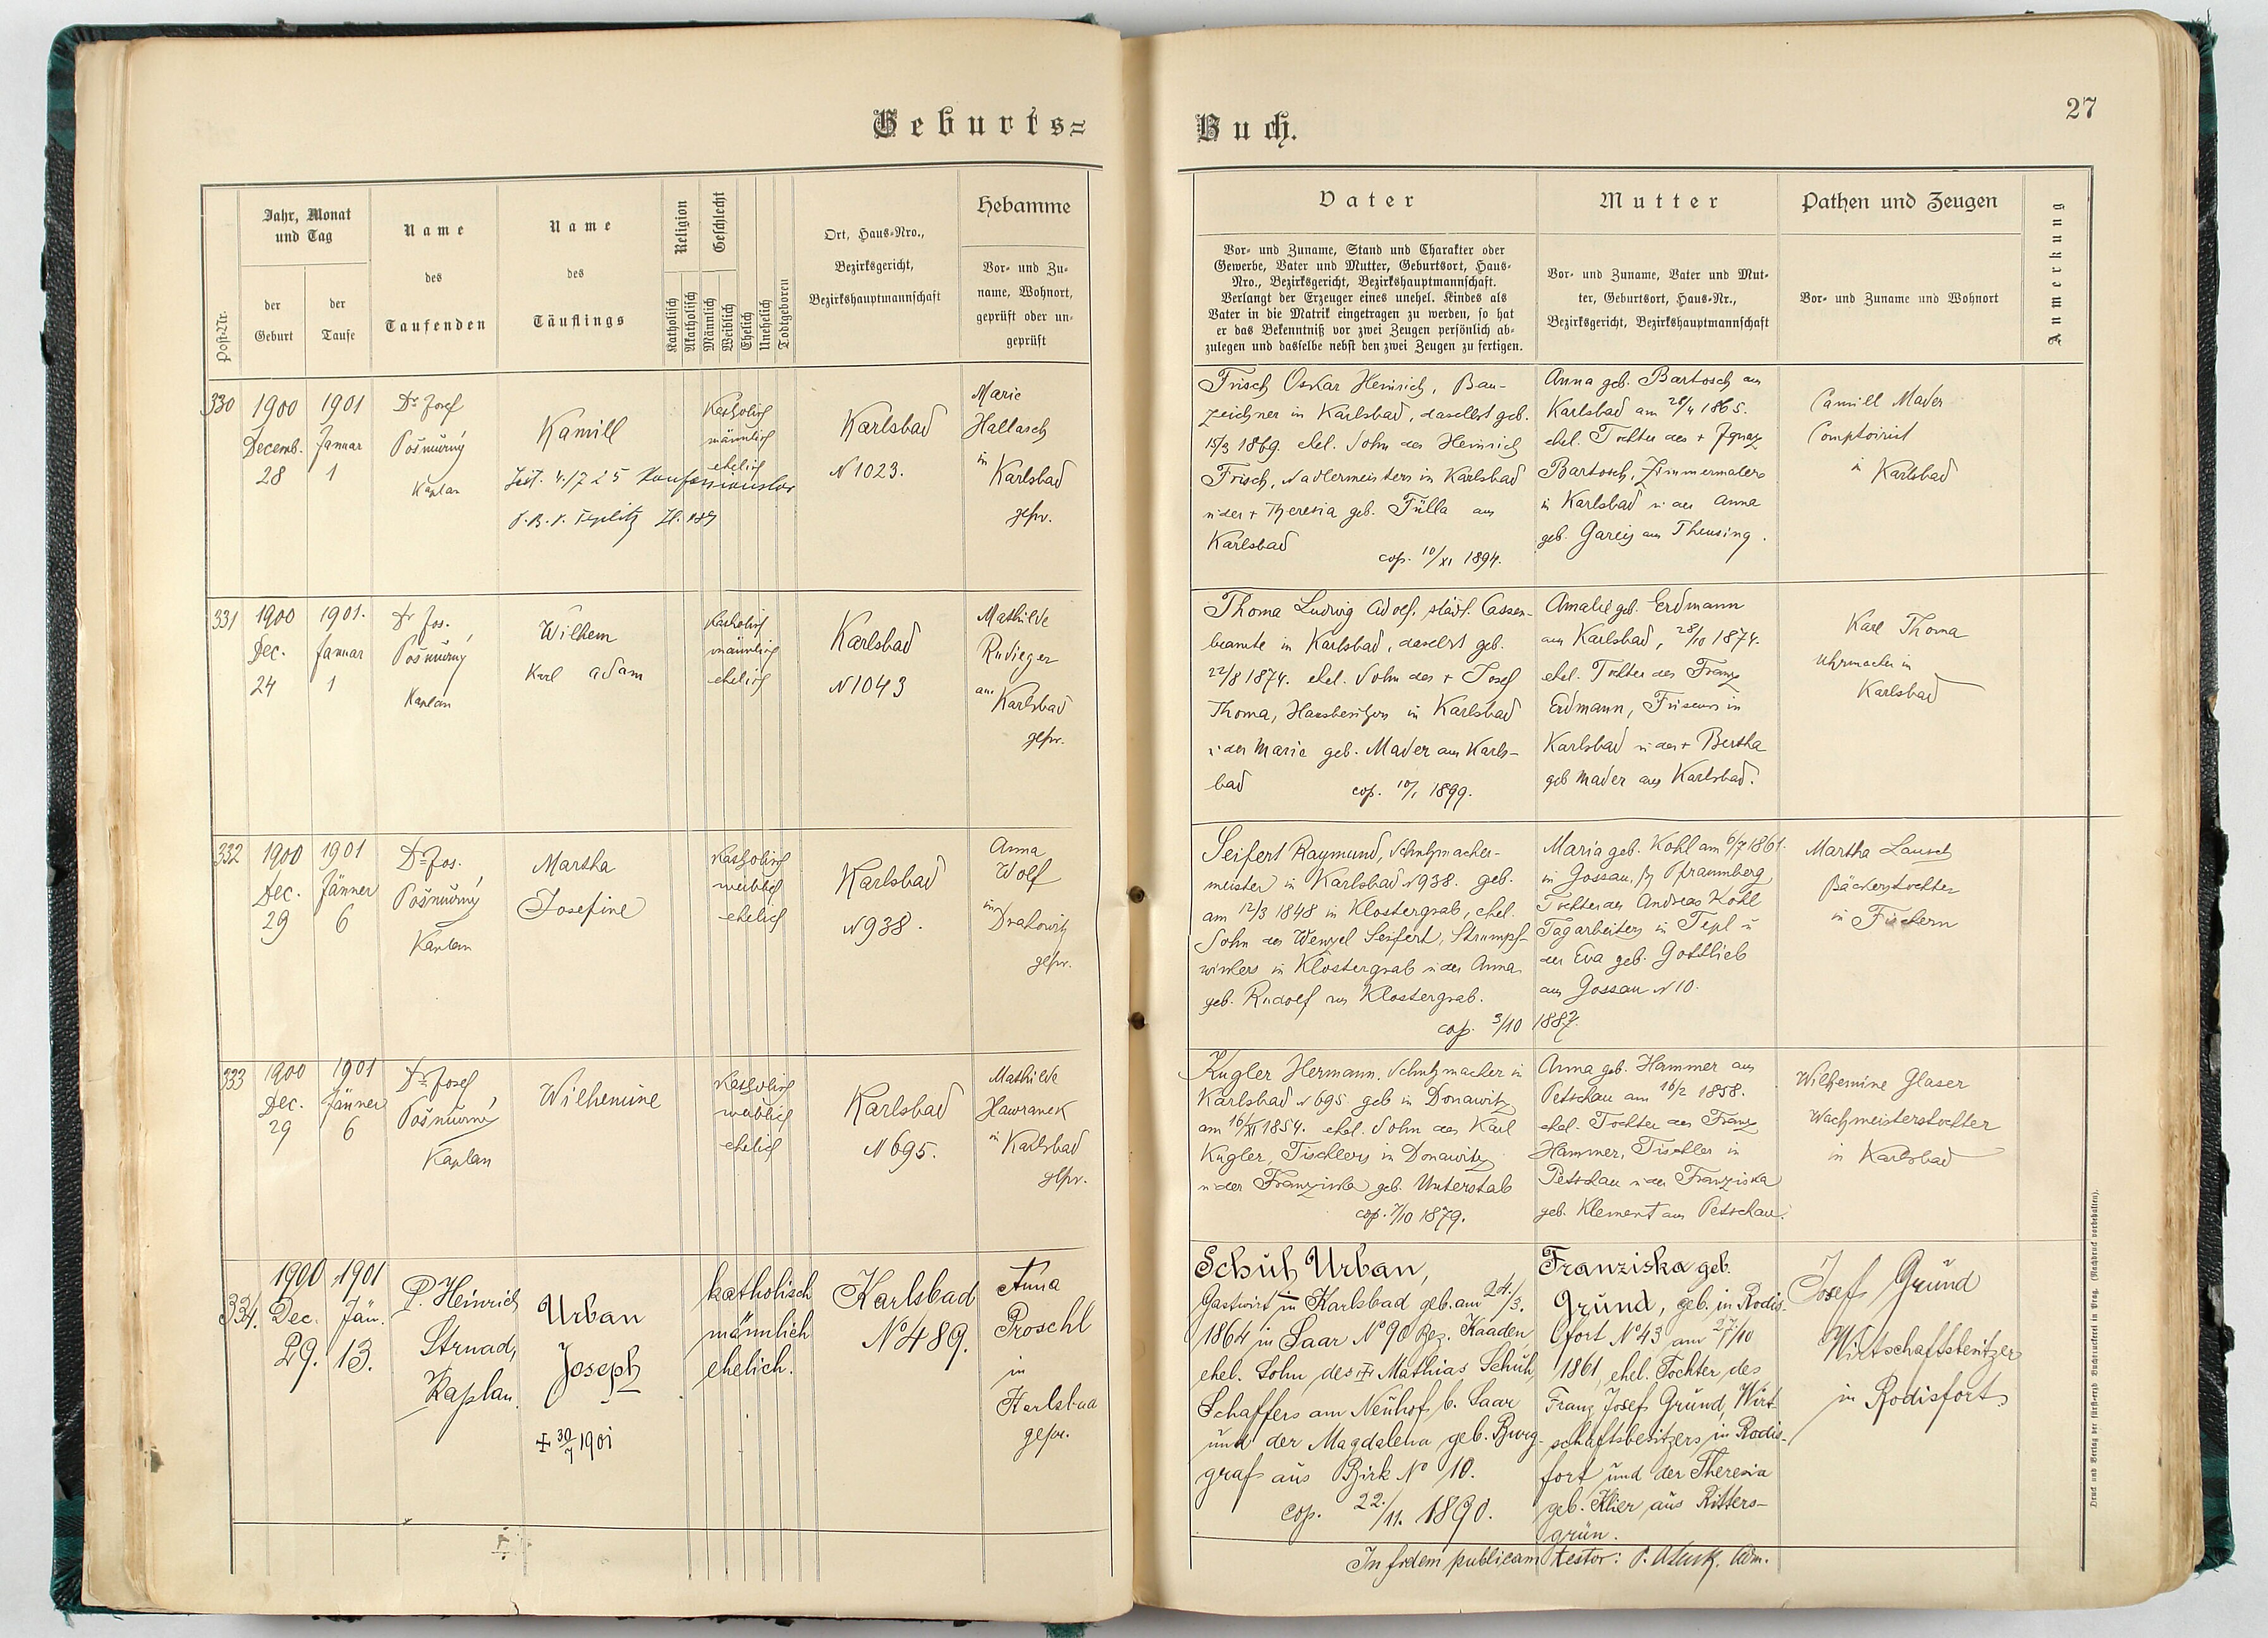 Geburts=
Buch.
27
Post-Nr.
Jahr, Monat
und Tag
der
Geburt
der
Taufe
Name
des
Taufenden
Name
des
Täuflings
Religion
Katholisch
Akatholisch
Geschlecht
Männlich
Weiblich
Ehelich
Unehelich
Todtgeboren
Ort, Haus-Nro.,
Bezirksgericht,
Bezirkshauptmannschaft
Hebamme
Vor- und Zu-
name, Wohnort,
geprüft oder un-
geprüft
Vater
Vor- und Zuname, Stand und Charakter oder
Gewerbe, Vater und Mutter, Geburtsort, Haus-
Nro., Bezirksgericht, Bezirkshauptmannschaft.
Verlangt der Erzeuger eines unehel. Kindes als
Vater in die Matrik eingetragen zu werden, so hat
er das Bekenntniß vor zwei Zeugen persönlich ab-
zulegen und dasselbe nebst den zwei Zeugen zu fertigen.
Mutter
Vor- und Zuname, Vater und Mut-
ter, Geburtsort, Haus-Nr.,
Bezirksgericht, Bezirkshauptmannschaft
Pathen und Zeugen
Vor- und Zuname und Wohnort
Anmerkung
330
1900
Decemb.
28
1901
Januar
1
Dr Josef
Pošmůrný
Kaplan
Kamill
Konfessionslos
Teplitz
Katholisch
männlich
ehelich
Karlsbad
N 1023.
Marie
Hallasch
in
Karlsbad
gepr.
Frisch Oskar Heinrich, Bau-
zeichner in Karlsbad, daselbst geb.
15/3 1869. ehel. Sohn des Heinrich
Frisch, Nadlermeisters in Karlsbad
u der + Theresia geb. Fülla aus
Karlsbad
cop. 10/XI 1894.
Anna geb. Bartosch aus
Karlsbad am 28/4 1865.
ehel. Tochter des + Ignaz
Bartosch, Zimmermalers
in Karlsbad u der Anna
geb. Gareis aus Theusing.
Camill Mader
Comptoirist
in Karlsbad
331
1900
Dec.
24
1901.
Januar
1
Dr Jos.
Pošmůrný
Kaplan
Wilhem
Karl Adam
Katholisch
männlich
ehelich
Karlsbad
N 1043
Mathilde
Rudieger
aus
Karlsbad
gepr.
Thoma Ludwig Adolf, städt. Cassen-
beamte in Karlsbad, daselbst geb.
22/8 1874. ehel. Sohn des + Josef
Thoma, Hausbesitzers in Karlsbad
u der Marie geb. Mader aus Karls-
bad
cop. 10/1 1899.
Amalie geb. Erdmann
aus Karlsbad, 28/10 1874.
ehel. Tochter des Franz
Erdmann, Friseurs in
Karlsbad u der + Bertha
geb Mader aus Karlsbad.
Karl Thoma
Uhrmacher in
Karlsbad
332
1900
Dec.
29
1901
Jänner
6
Dr Jos.
Pošmůrný
Kaplan
Martha
Josefine
Katholisch
weiblich
ehelich
Karlsbad
N 938.
Anna
Wolf
in
Drahowitz
gepr.
Seifert Raymund, Schuhmacher-
meister in Karlsbad N 938. geb.
am 12/3 1848 in Klostergrab, ehel.
Sohn des Wenzel Seifert, Strumpf-
wirkers in Klostergrab u der Anna
geb. Rudolf aus Klostergrab.
cop. 3/10 1887.
Maria geb. Kohl am 6/7 1861.
in Gossau, Bz Pfraumberg
Tochter des Andreas Kohl
Tagarbeiters in Tepl u
der Eva geb. Gottlieb
aus Gossau N 10.
Martha Lausch
Bäckerstochter
in Fischern
333
1900
Dec.
29
1901
Jänner
6
Dr Josef
Pošmůrný
Kaplan
Wilhemine
Katholisch
weiblich
ehelich
Karlsbad
N 695.
Mathilde
Hawranek
in Karlsbad
gepr.
Kugler Hermann, Schuhmacher in
Karlsbad N 695 geb in Donawitz
am 16/XI 1854. ehel. Sohn des Karl
Kugler, Tischlers in Donawitz
u der Franziska geb. Unterstab
cop. 7/10 1879.
Anna geb. Hammer aus
Petschau am 16/2 1858.
ehel. Tochter des Franz
Hammer, Tischler in
Petschau u der Franziska
geb. Klement aus Petschau.
Wilhemine Glaser
Wachmeisterstochter
in Karlsbad
334.
1900
Dec.
29.
1901
Jän.
13.
P. Heinrich
Strnad,
Kaplan.
Urban
Joseph
+ 30/7 1901
katholisch
männlich
ehelich.
Karlsbad
No 489.
Anna
Proschl
in
Karlsbad
gepr.
Schuh Urban,
Gastwirt in Karlsbad geb. am 24./3.
1864 in Saar No 90 Bez. Kaaden
ehel. Sohn des + Mathias Schuh
Schaffers am Neuhof b. Saar
und der Magdalena geb. Burg-
graf aus Birk No 10.
cop. 22./11. 1890.
Franziska geb.
Grund, geb. in Rodis-
fort No 43 am 27./10
1861, ehel. Tochter des
Franz Josef Grund, Wirt-
schaftsbesitzers in Rodis-
fort und der Theresia
geb. Klier aus Ritters-
grün.
Josef Grund
Wirtschaftsbesitzer
in Rodisfort
In fidem publicam testor: P. Adm.
Druck und Verlag der fürsterzb. Buchdruckerei in Prag. (Nachdruck vorbehalten).